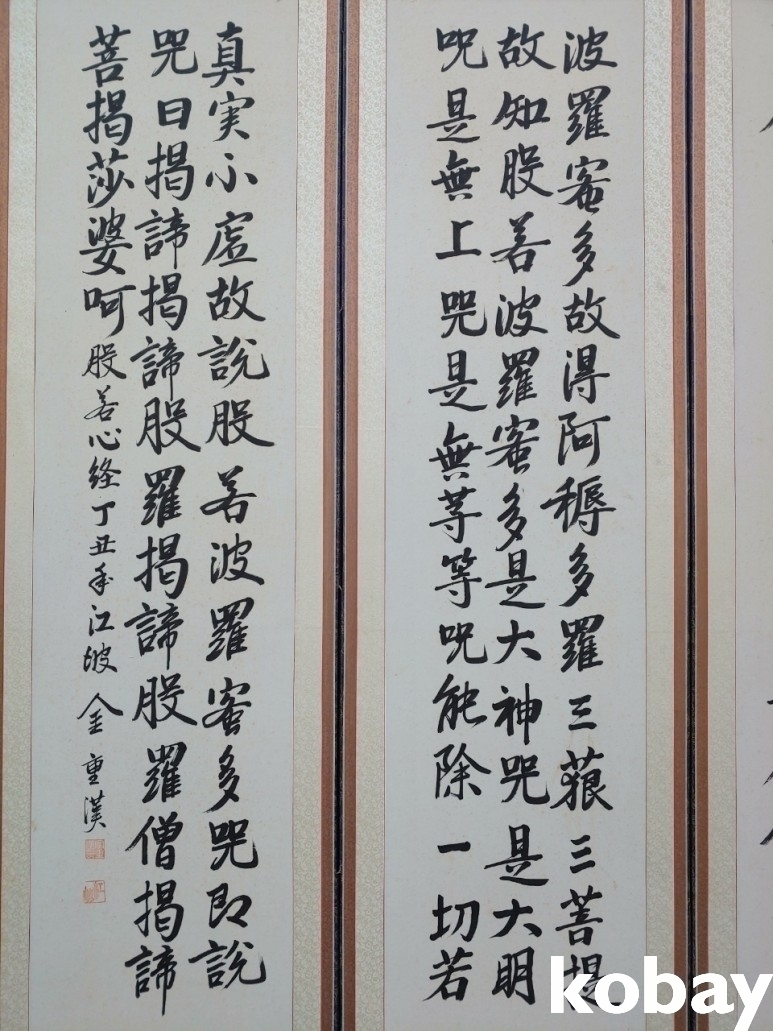 波羅蜜多故得阿耨多羅三藐三菩提
故知般若波羅蜜多是大神咒是大明
呪是無上咒是無等等呪能除一切若
真実不虛故說般若波羅蜜多咒即說
咒曰揭諦揭諦般羅揭諦般羅僧揭諦
菩揭莎婆呵 般若心経 丁丑年 江坡 金重漢
kobay